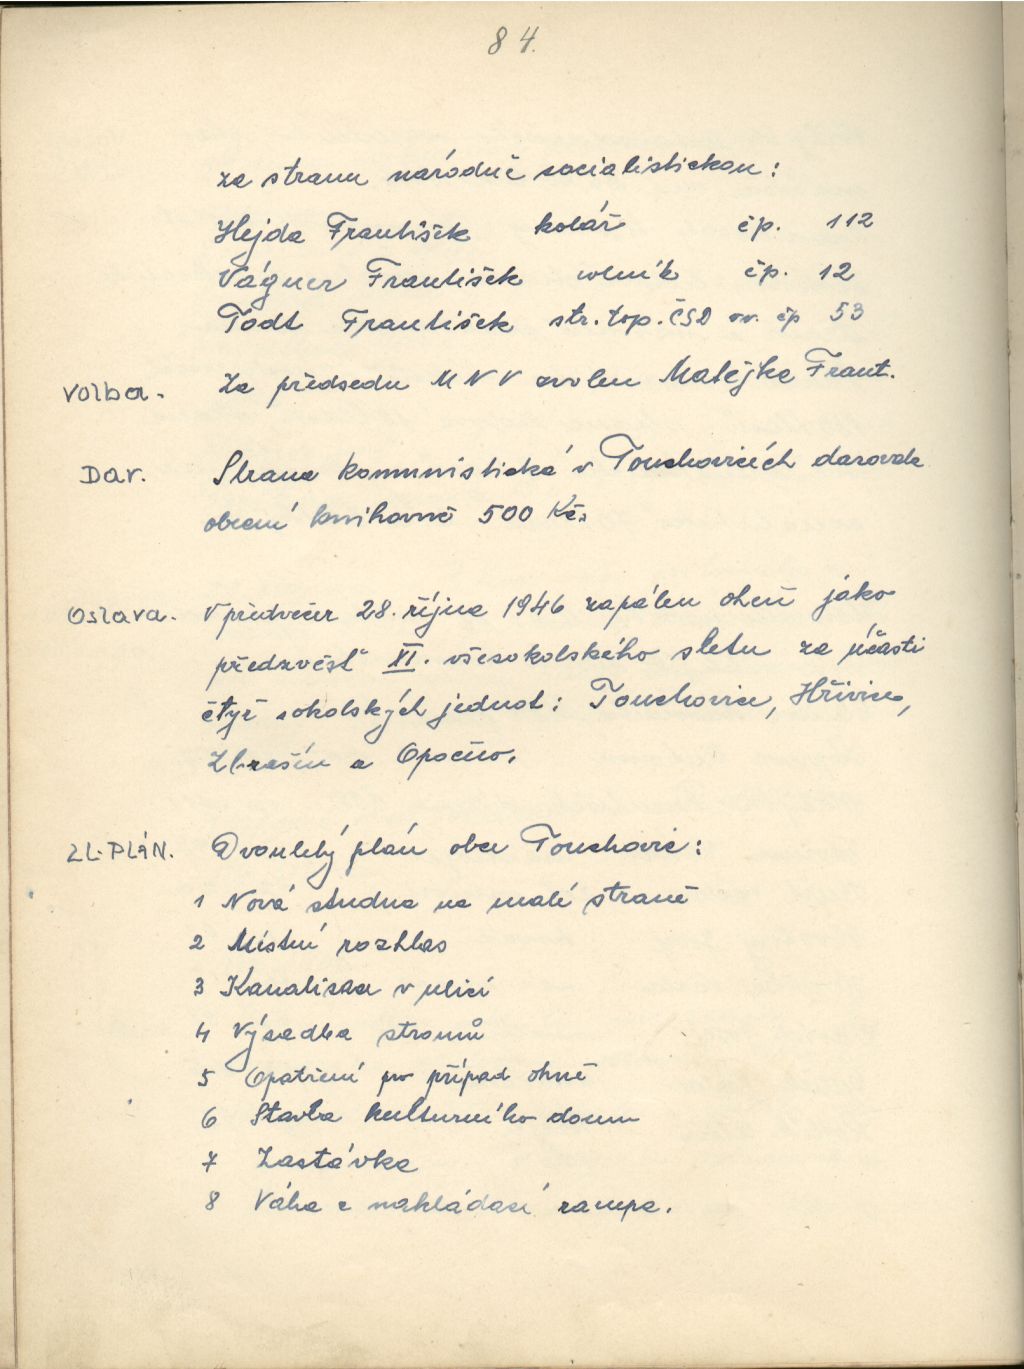 84.
za stranu národně socialistickou:
Hejda František kolář čp. 112
Vágner František rolník čp. 12
Todt František str. top. ČSD v. čp 53
Volba. Za předsedu MNV zvolen Matějka Frant.
Dar. Strana komunistická v Touchovicích darovala
obecní knihovně 500 Kčs
Oslava. V předvečer 28. října 1946 zapálen oheň jako
předzvěst XI. všesokolského sletu za účasti
čtyř sokolských jednot: Touchovice, Hřivice,
Zbrašín a Opočno.
2L.PLÁN. Dvouletý plán obce Touchovic:
1 Nová studna na malé straně
2 Místní rozhlas
3 Kanalisace v ulici
4 Výsadba stromů
5 Opatření pro případ ohně
6 Stavba kulturního domu
7 Zastávka
8 Váha a nakládací rampa.